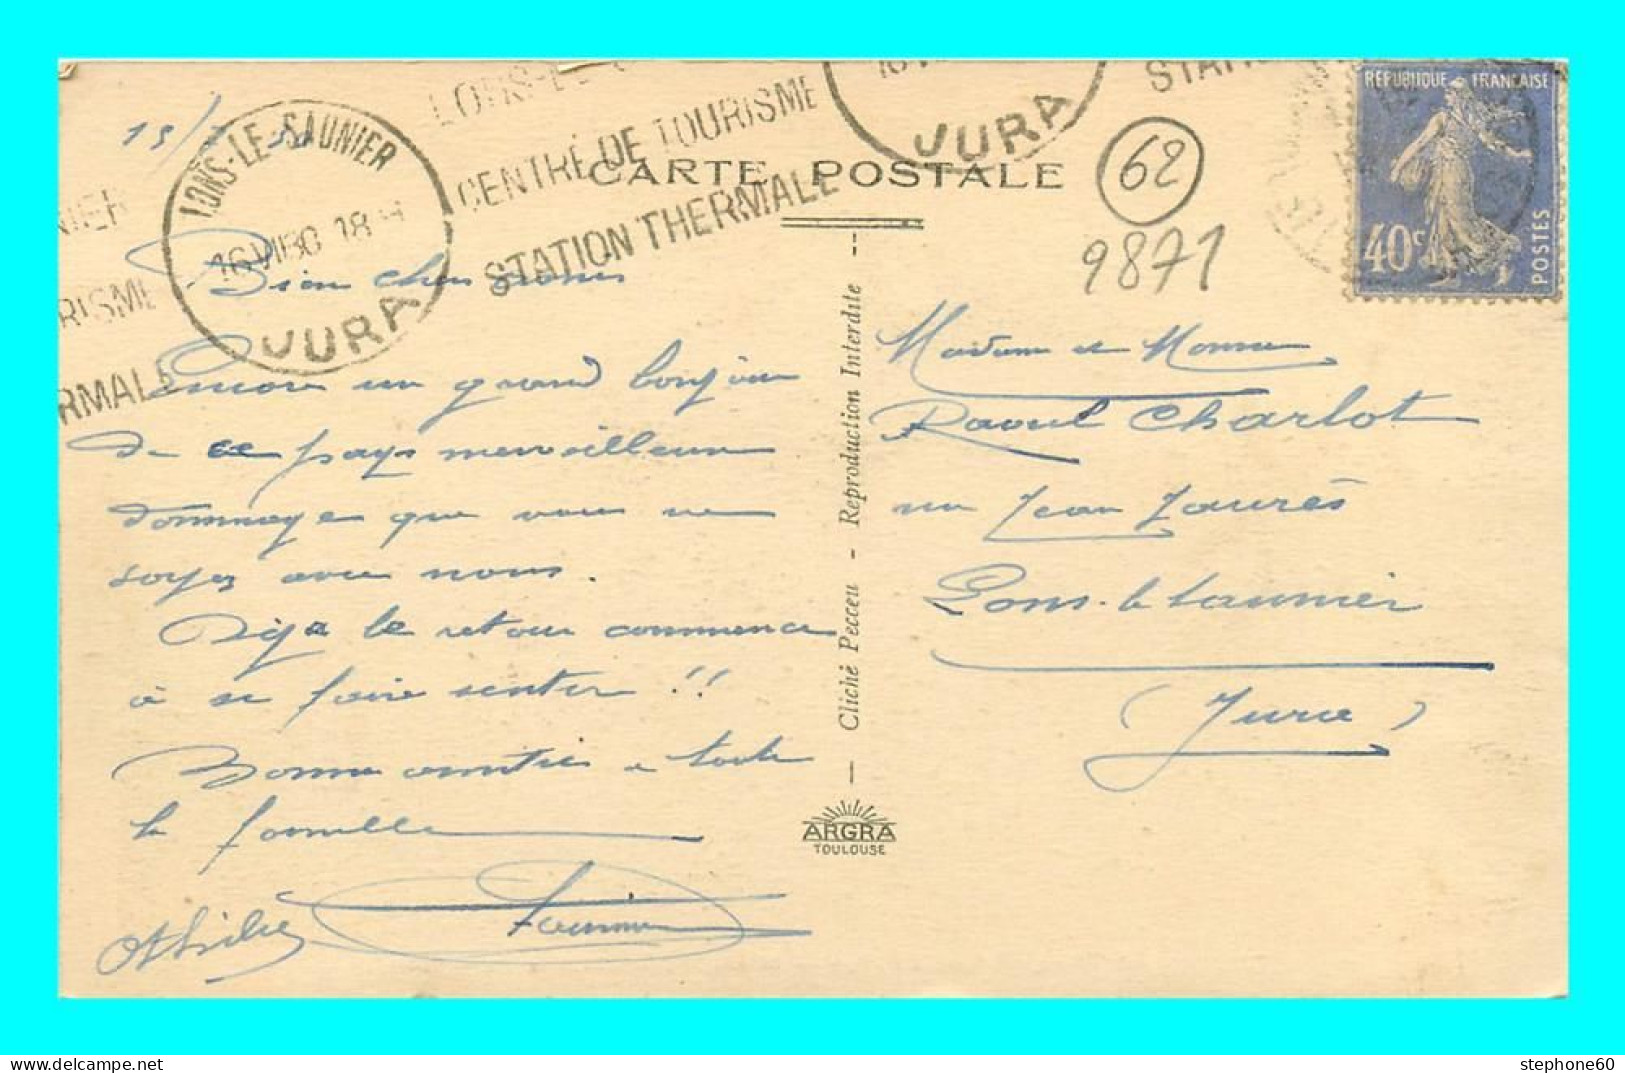 LONS-LE-SAUNIER
16 VI 30 18 H
JURA
NIER
RISME
RMALE
CENTRE DE TOURISME
STATION THERMALE
JURA
CARTE POSTALE
62
9871
REPUBLIQUE FRANÇAISE
40c
POSTES
Bien chers amis
Encore un grand bonjour
de ce pays merveilleux
dommage que vous ne
soyez avec nous.
Déja le retour commence
à se faire sentir !!
Bonne amitiés a toute
la famille
Madame et Monsieur
Raoul Charlot
rue Jean Jaurès
Lons-le Saunier
(Jura)
Cliché Pecceu - Reproduction Interdite
ARGRA
TOULOUSE
stephone60